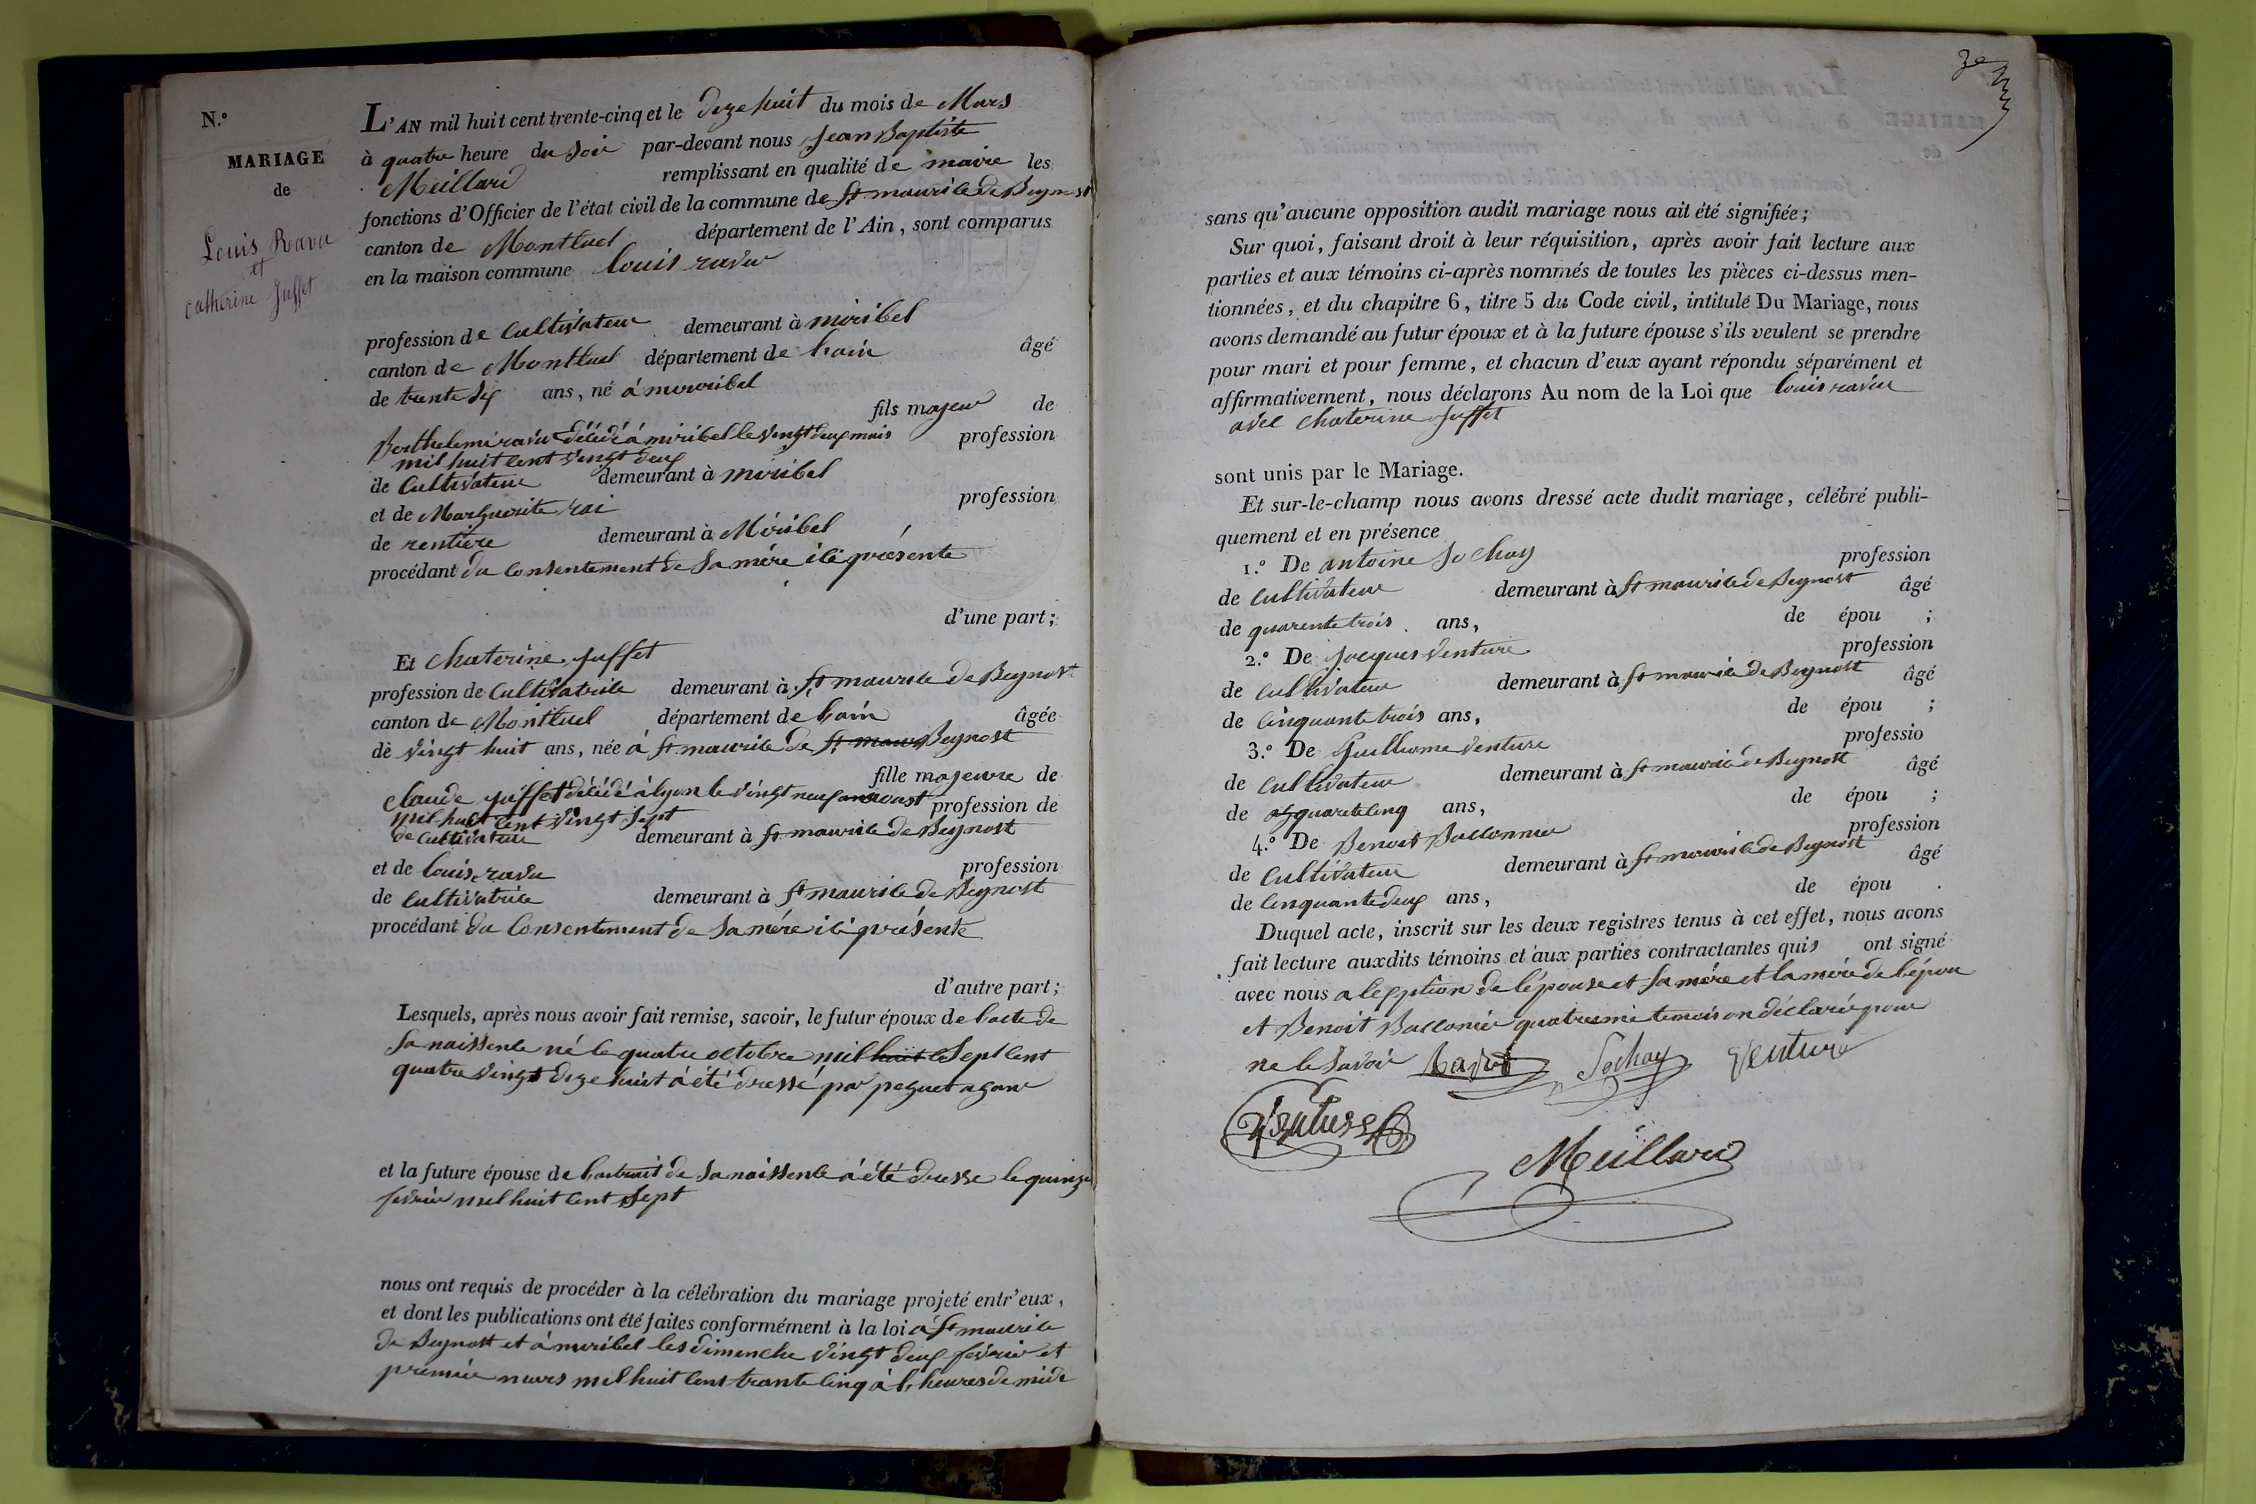 N.º
MARIAGE
de
Louis Ravu
et
Catherine Juffet
L'AN mil huit cent trente-cinq et le dize huit du mois de Mars
à quatre heure du soir par-devant nous Jean Baptiste
Meillard remplissant en qualité de maire les
fonctions d'Officier de l'état civil de la commune de St maurice de Beynost
canton de Montluel département de l'Ain, sont comparus
en la maison commune louis ravu
profession de Cultivateur demeurant à miribel
canton de Montluel département de lain âgé
de trente six ans, né à mirribel
fils majeur de
Berthelemi ravu décédé à miribel le vingt deux mais profession
mil huit cent vingt deux
de Cultivateur demeurant à miribel
et de Marguerite rai profession
de rentiere demeurant à Miribel
procédant du consentement de sa mére ici présente
d'une part;
Et Chaterine juffet
profession de Cultivatrice demeurant à St maurice de Beynost
canton de Montluel département de lain âgée
de vingt huit ans, née à St maurice de St maur Beynost
fille majeure de
Claude juffet décédé à lyon le vingt neuf aoust profession de
mil huit cent vingt sept
de cultivateur demeurant à St maurice de Beynost
et de louise ravu profession
de Cultivatrice demeurant à St maurice de Beynost
procédant du Consentement de sa mére ici présente
d'autre part;
Lesquels, après nous avoir fait remise, savoir, le futur époux de lacte de
sa naissence né le quatre octobre mil huit c Sept cent
quatre vingt dize huit à été dressé par peguet agent
et la future épouse de lextrait de sa naissence à été dresse le quinze
fevrier mil huit cent sept
nous ont requis de procéder à la célébration du mariage projeté entr'eux,
et dont les publications ont été faites conformément à la loi à St maurice
de Beynost et à miribel les dimenche vingt deux fevrier et
premier mars mil huit cent trante cinq à l, heures de midi
sans qu'aucune opposition audit mariage nous ait été signifiée;
Sur quoi, faisant droit à leur réquisition, après avoir fait lecture aux
parties et aux témoins ci-après nommés de toutes les pièces ci-dessus men-
tionnées, et du chapitre 6, titre 5 du Code civil, intitulé Du Mariage, nous
avons demandé au futur époux et à la future épouse s'ils veulent se prendre
pour mari et pour femme, et chacun d'eux ayant répondu séparément et
affirmativement, nous déclarons Au nom de la Loi que louis ravu
avec chaterine juffet
sont unis par le Mariage.
Et sur-le-champ nous avons dressé acte dudit mariage, célébré publi-
quement et en présence
1.º De antoine Sochay profession
de cultivateur demeurant à St maurice de Beynost âgé
de quarente trois ans, de épou ;
2.º De jacques venture profession
de cultivateur demeurant à St maurice de Beynost âgé
de cinquante trois ans, de épou ;
3.º De guilliome venture professio
de cultivateur demeurant à St maurice de Beynost âgé
de quarente cinq ans, de épou ;
4.º De Benoit Ballonnier profession
de Cultivateur demeurant à St maurice de Beynost âgé
de cinquante deux ans, de épou .
Duquel acte, inscrit sur les deux registres tenus à cet effet, nous avons
fait lecture auxdits témoins et aux parties contractantes quis ont signé
avec nous a lexption de l'épouse et sa mére et la mére de lépou
et Benoit Ballonier quatreimé temois on déclaré pour
ne le savoir Ravet Sochay Venture
Venture
Meillard